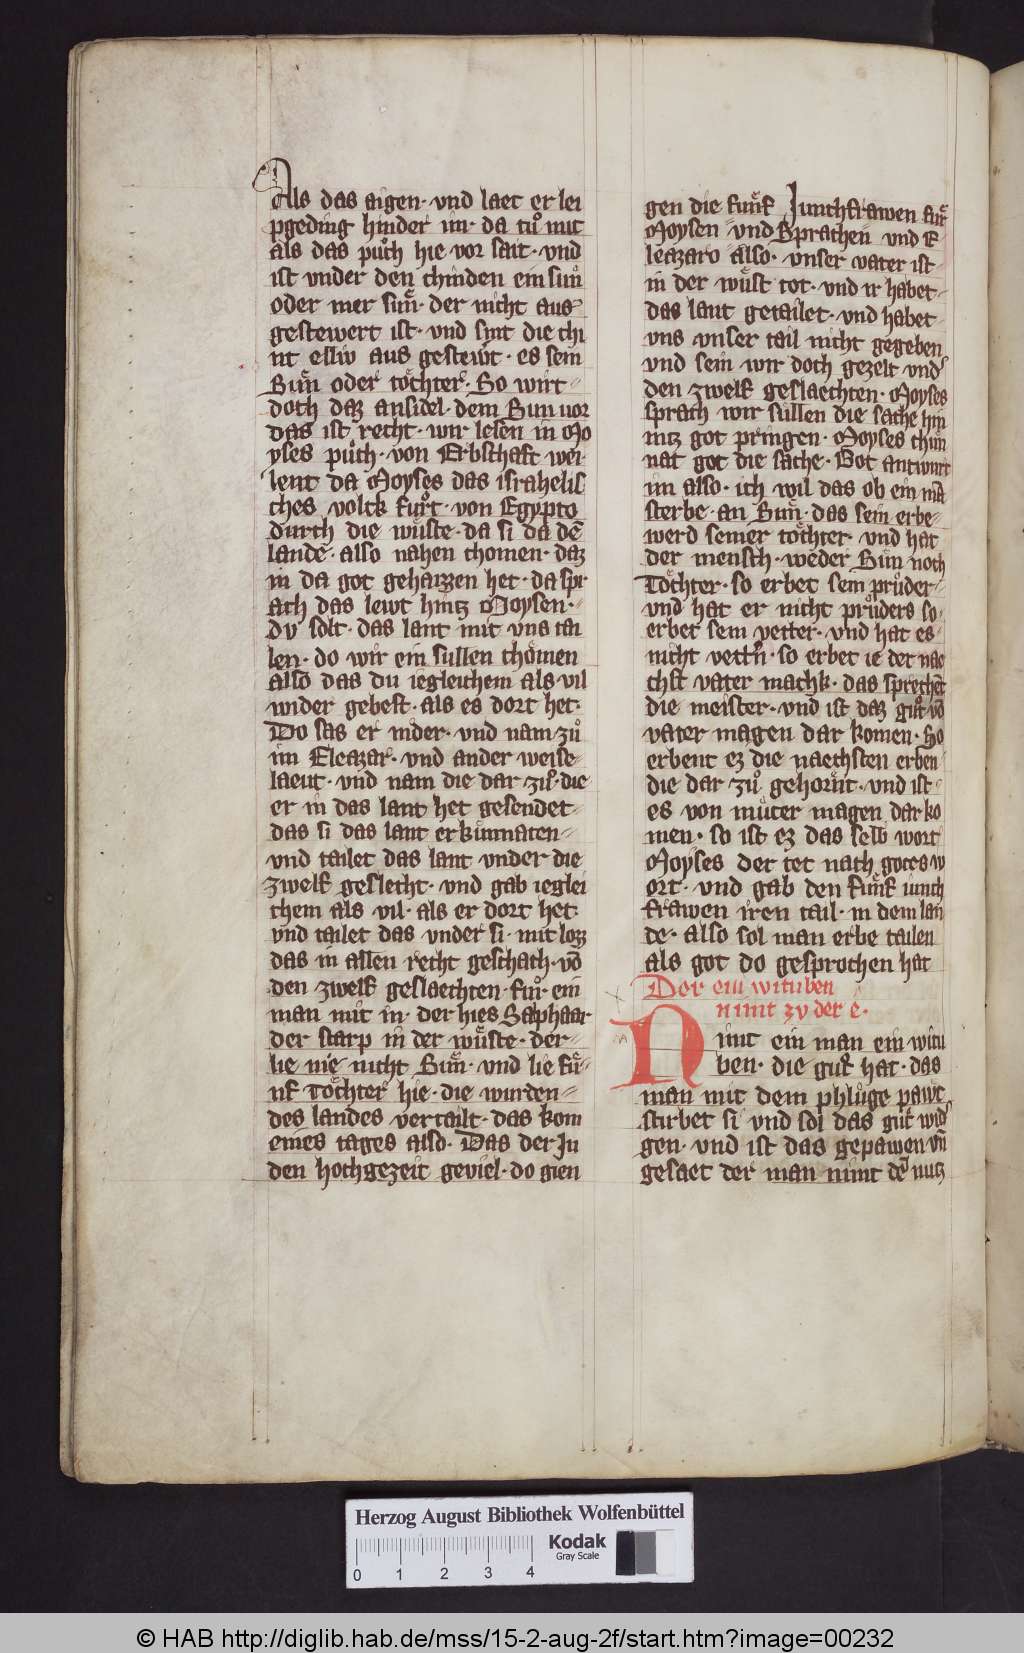 Als das aigen · vnd laet er lei
pgeding hinder im · da tuͦ mit
als das puͦch hie vor sait · vnd
ist vnder den chinden ein sun
oder mer suͤn · der nicht aus
gestewert ist · vnd sint die chi
nt elliv aus gestewͤrt · es sein
Suͤn oder toͤchter · So wirt
doch daz ansidel · dem Sun vor
das ist recht · wir lesen in Mo
yses puͦch · von Erbschaft wei
lent da Moyses das israhelis
ches volck fuͦrt · von Egypto
durch die wuͤste · da si da dē
lande · also nahen chomen · daz
in da got gehaizzen het · da spr
ach das lewt hintz Moysen ·
dv solt · das lant mit vns tai
len · do wir ein sullen choͤmen
also das du iegleichem als vil
wider gebest · als es dort het ·
Do sas er nider · vnd nam zuͦ
im Eleazar · vnd ander weise
laeut · vnd nam die dar zuͦ · die
er in das lant het gesendet
das si das lant erkuͤnnaten
vnd tailet das lant vnder die
zwelf geslecht · vnd gab ieglei
chem als vil · als er dort het ·
vnd tailet das vnder si · mit lozz
das in allen recht geschach · vō
den zwelf geslaechten · fuͦr · ein
man mit in · der hies Saphaar
der starp in der wuͤste · der
lie nie nicht Suͤn · vnd lie fuͤ
nf Toͤchter hie · die wurden
des landes vertailt · das kom
eines tages also · Das der Ju
den hochgezeit geviel · do gien
gen die fuͤnf Junchfrawen fuͤr
Moysen vnd Sprachen vnd E
leazaro also · vnser vater ist
in der wuͤst tot · vnd ir habet
das lant getailet · vnd habet
vns vnser tail nicht gegeben
vnd sein wir doch gezelt vnder
den zwelf geslaechten · Moyses
sprach wir sullen die sache hin
nitz got pringen · Moyses chun
nat got die sache · Got antwurt
im also · ich wil das ob ein mā
sterbe · an Suͤn · das sein erbe
werd seiner toͤchter · vnd hat
der mensch · weder Suͤn noch
Toͤchter · so erbet sein pruͤder
vnd hat er nicht pruͤders so ·
erbet sein vetter · vnd hat es
nicht vettern · so erbet ie der nae
chst vater machk · das sprechēt
die meister · vnd ist daz guͦt vō
vater magen dar komen · So
erbent ez die naechsten erben
die dar zuͦ gehornt · vnd ist
es von muͦter magen dar ko
men · so ist ez das selb wort
Moyses der tet nach gotes w
ort · vnd gab den fuͤnf iunch
frawen iren tail · in dem lan
de · also sol man erbe tailen
als got do gesprochen hat
Der ein wituben
nimt zv der e ·
Nimt ein man ein witu
ben · die guͦt hat · das
man mit dem phluͤge pawt
stirbet si vnd sol das guͦt wider
gen · vnd ist das gepawen vn̄
gesaet der man nimt dē nutz
Herzog August Bibliothek Wolfenbüttel
Kodak
Gray Scale
0 1 2 3 4
© HAB http://diglib.hab.de/mss/15-2-aug-2f/start.htm?image=00232